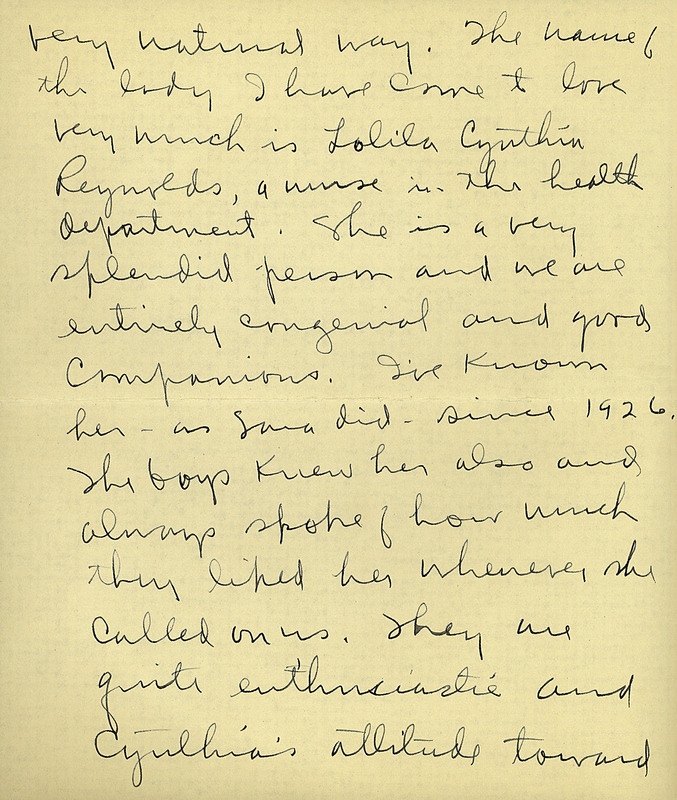 very natural way. The name of
the lady I have come to love
very much is Lolila Cynthia
Reynolds, a nurse in the health
department. She is a very
splendid person and we are
entirely congenial and good
companions. I've known
her - as Zara did - since 1926.
The boys knew her also and
always spoke of how much
they liked her whenever she
called on us. They are
quite enthusiastic and
Cynthia's attitude toward